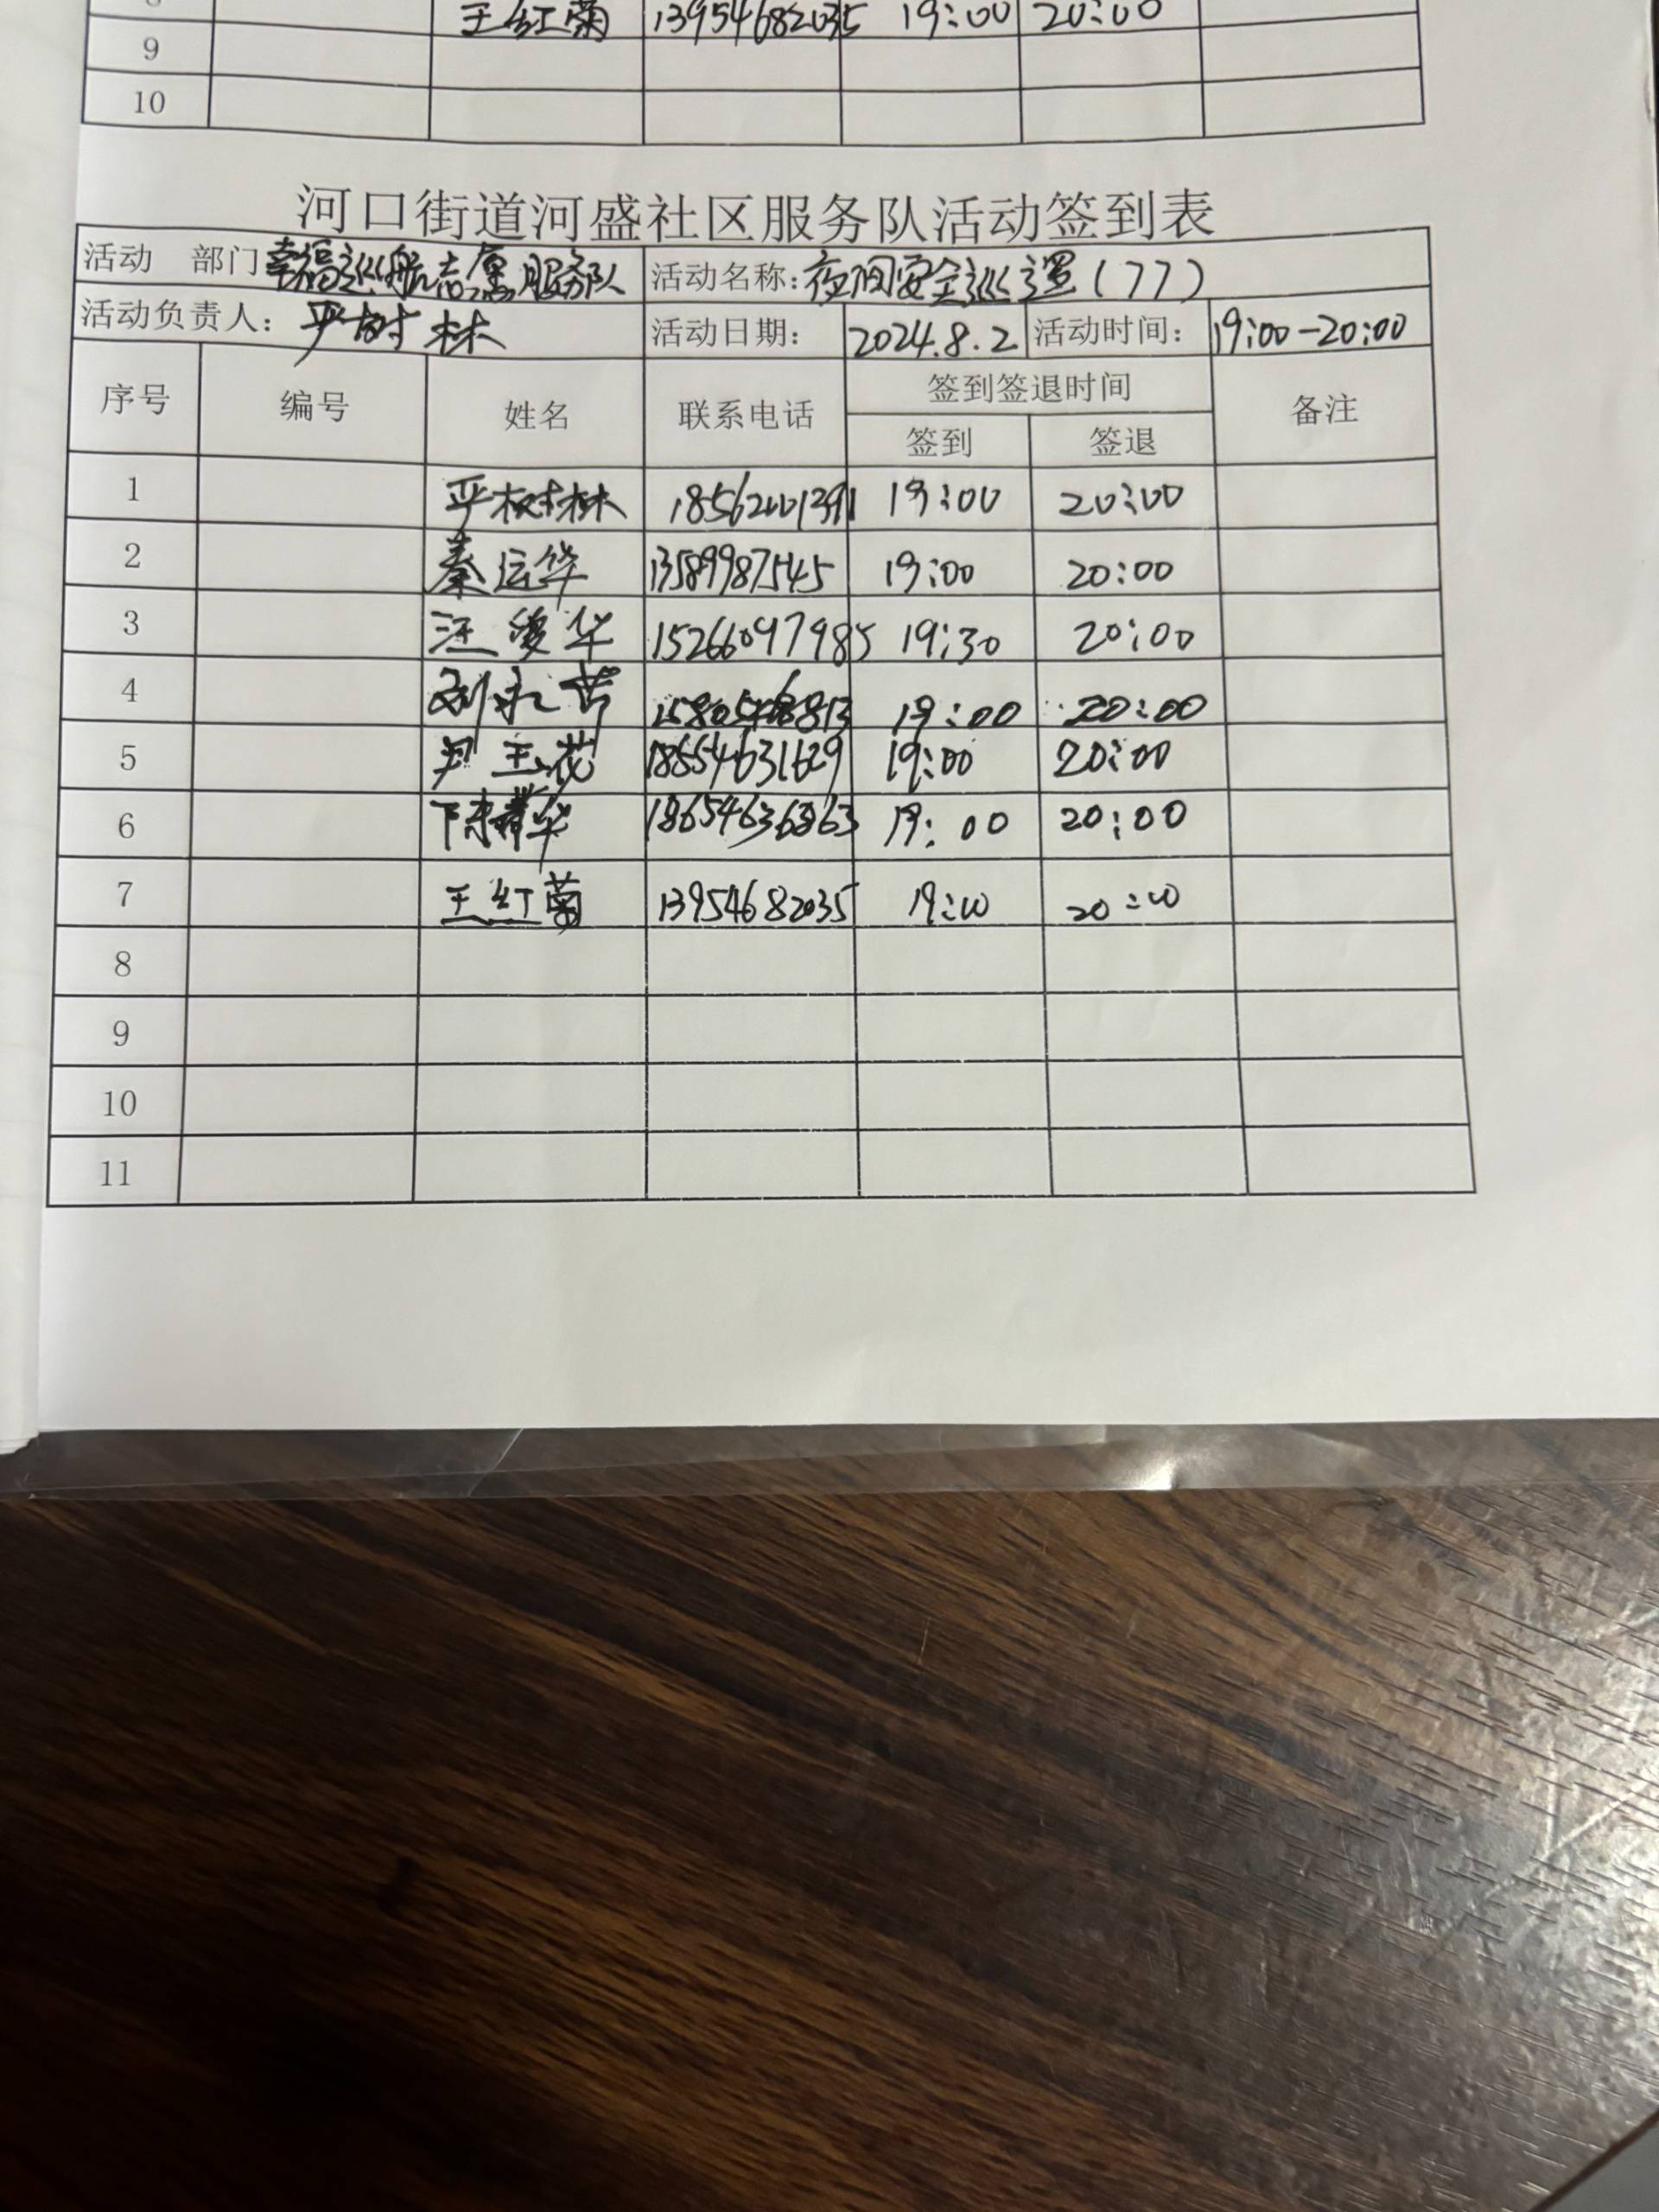 王红菊 13954682035 19:00 20:00
9
10
河口街道河盛社区服务队活动签到表
活动 部门 幸福巡航志愿服务队 活动名称: 夜间安全巡逻(77)
活动负责人: 严树林 活动日期: 2024.8.2 活动时间: 19:00-20:00
序号 编号 姓名 联系电话 签到签退时间 备注
签到 签退
1 严树林 18562001391 19:00 20:00
2 秦运华 13589987545 19:00 20:00
3 汪俊华 15266097985 19:30 20:00
4 刘永 19:00 20:00
5 尹玉花 18654631629 19:00 20:00
6 18654636863 19:00 20:00
7 王红菊 13954682035 19:00 20:00
8
9
10
11